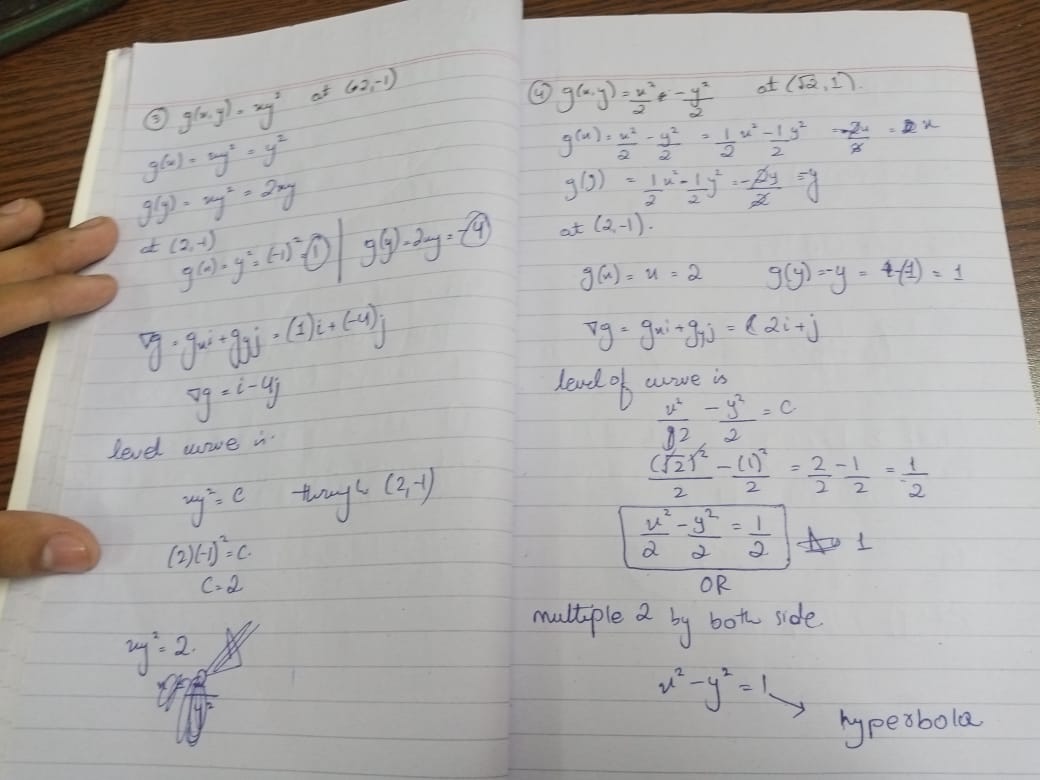 ③ g(x,y) = xy² at (2,-1)
g(x) = xy² = y²
g(y) = xy² = 2xy
at (2,-1)
g(x) = y² = (-1)² = 1 | g(y) = 2xy = -4
∇g = gxi + gyj = (1)i + (-4)j
∇g = i - 4j
level curve is.
xy² = c through (2,-1)
(2)(-1)² = c.
C = 2
xy² = 2.
④ g(x,y) = x²/2 - y²/2 at (√2, 1).
g(x) = x²/2 - y²/2 = 1/2 x² - 1/2 y² = 2x/2 = x
g(y) = 1/2 x² - 1/2 y² = -2y/2 = y
at (2,-1).
g(x) = x = 2 g(y) = -y = -(1) = 1
∇g = gxi + gyj = 2i + j
level of curve is
x²/2 - y²/2 = c
(√2)²/2 - (1)²/2 = 2/2 - 1/2 = 1/2
x²/2 - y²/2 = 1/2 1
OR
multiple 2 by both side.
x² - y² = 1 → hyperbola